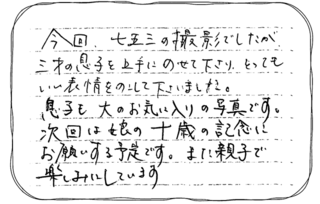 今回、七五三の撮影でしたが
三才の息子を上手にのせて下さり、とっても
いい表情をのこして下さいました。
息子も大のお気に入りの写真です。
次回は長の十歳の記念に
お願いする予定です。また親子で
楽しみにしています